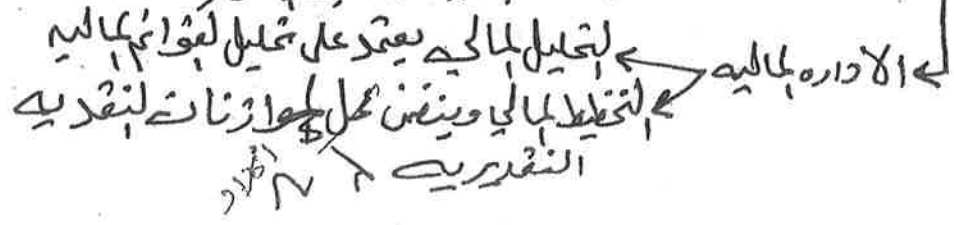 الاداره الماليه ← التحليل المالي يعتمد على تحليل القوائم الماليه
← التخطيط المالي ويتضمن عمل الموازنات النقديه
التقديريه